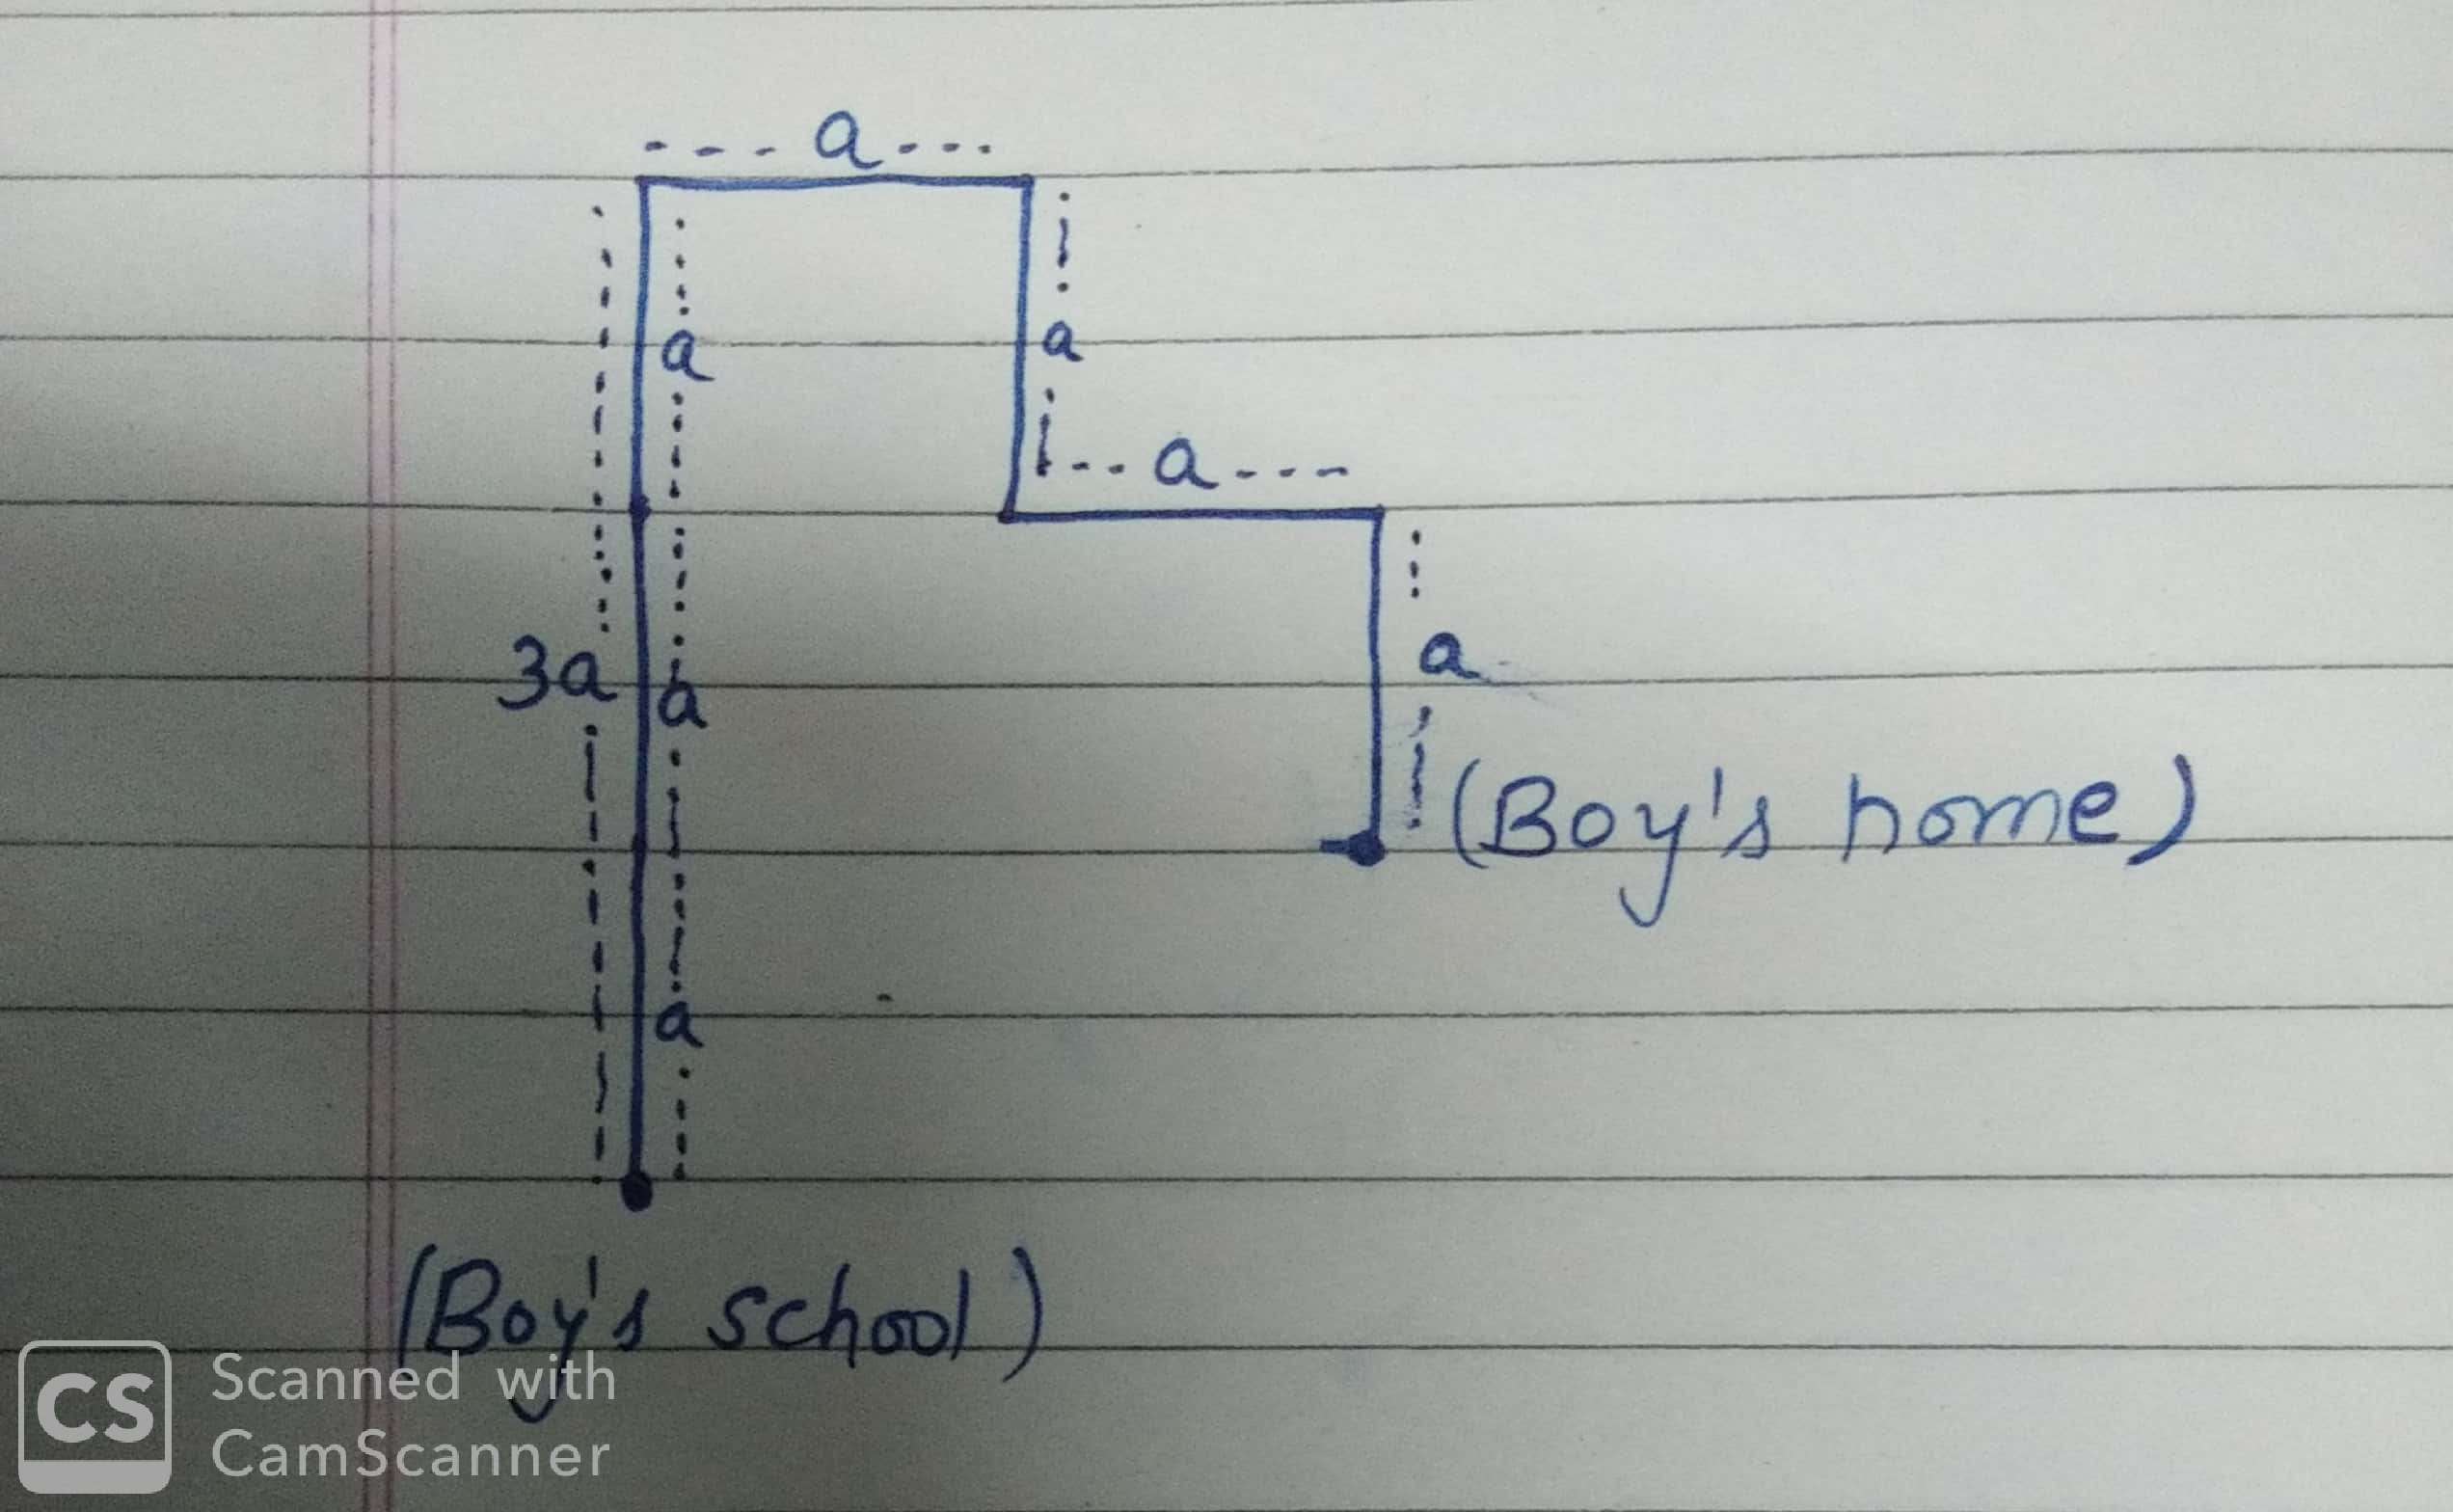 a
a
a
a
3a
a
a
a
(Boy's home)
a
(Boy's school)
CS
Scanned with
CamScanner